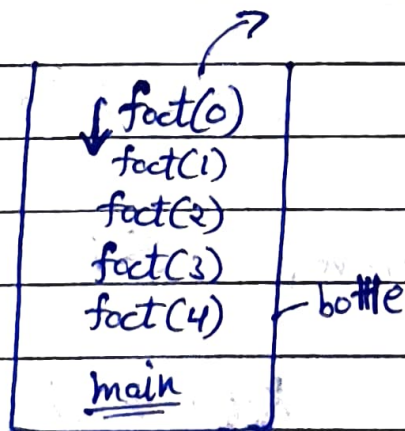 fact(0)
fact(1)
fact(2)
fact(3)
fact(4)
bottle
main